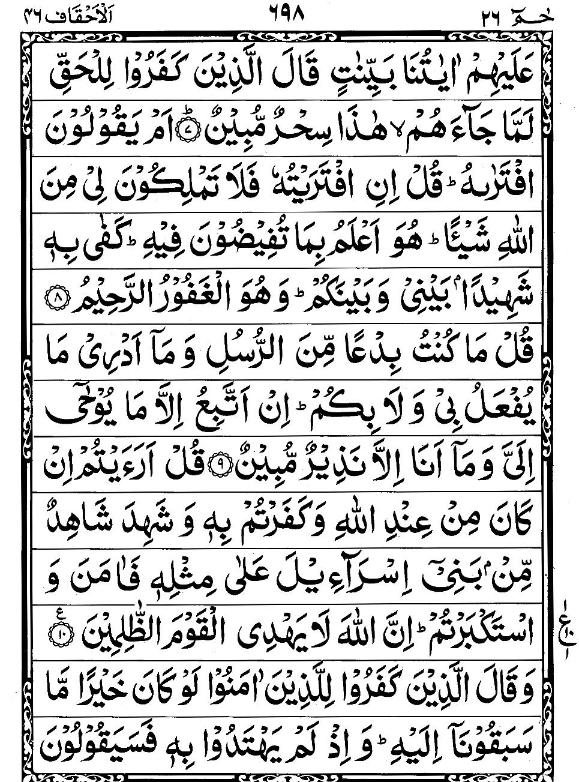 حٰمٓ ٢٦ ٦٩٨ اَلْاَحْقَاف ٤٦
عَلَيْهِمْ اٰيٰتُنَا بَيِّنٰتٍ قَالَ الَّذِيْنَ كَفَرُوْا لِلْحَقِّ
لَمَّا جَآءَهُمْ ۙ هٰذَا سِحْرٌ مُّبِيْنٌ ؕ﴿٧﴾ اَمْ يَقُوْلُوْنَ
افْتَرٰىهُ ؕ قُلْ اِنِ افْتَرَيْتُهٗ فَلَا تَمْلِكُوْنَ لِيْ مِنَ
اللّٰهِ شَيْـًٔا ؕ هُوَ اَعْلَمُ بِمَا تُفِيْضُوْنَ فِيْهِ ؕ كَفٰى بِهٖ
شَهِيْدًۢا بَيْنِيْ وَبَيْنَكُمْ ؕ وَهُوَ الْغَفُوْرُ الرَّحِيْمُ ﴿٨﴾
قُلْ مَا كُنْتُ بِدْعًا مِّنَ الرُّسُلِ وَمَآ اَدْرِيْ مَا
يُفْعَلُ بِيْ وَلَا بِكُمْ ؕ اِنْ اَتَّبِعُ اِلَّا مَا يُوْحٰٓى
اِلَيَّ وَمَآ اَنَا اِلَّا نَذِيْرٌ مُّبِيْنٌ ﴿٩﴾ قُلْ اَرَءَيْتُمْ اِنْ
كَانَ مِنْ عِنْدِ اللّٰهِ وَكَفَرْتُمْ بِهٖ وَشَهِدَ شَاهِدٌ
مِّنْۢ بَنِيْٓ اِسْرَآءِيْلَ عَلٰى مِثْلِهٖ فَاٰمَنَ وَ
اسْتَكْبَرْتُمْ ؕ اِنَّ اللّٰهَ لَا يَهْدِى الْقَوْمَ الظّٰلِمِيْنَ ﴿١٠﴾ ع
وَقَالَ الَّذِيْنَ كَفَرُوْا لِلَّذِيْنَ اٰمَنُوْا لَوْ كَانَ خَيْرًا مَّا
سَبَقُوْنَآ اِلَيْهِ ؕ وَاِذْ لَمْ يَهْتَدُوْا بِهٖ فَسَيَقُوْلُوْنَ